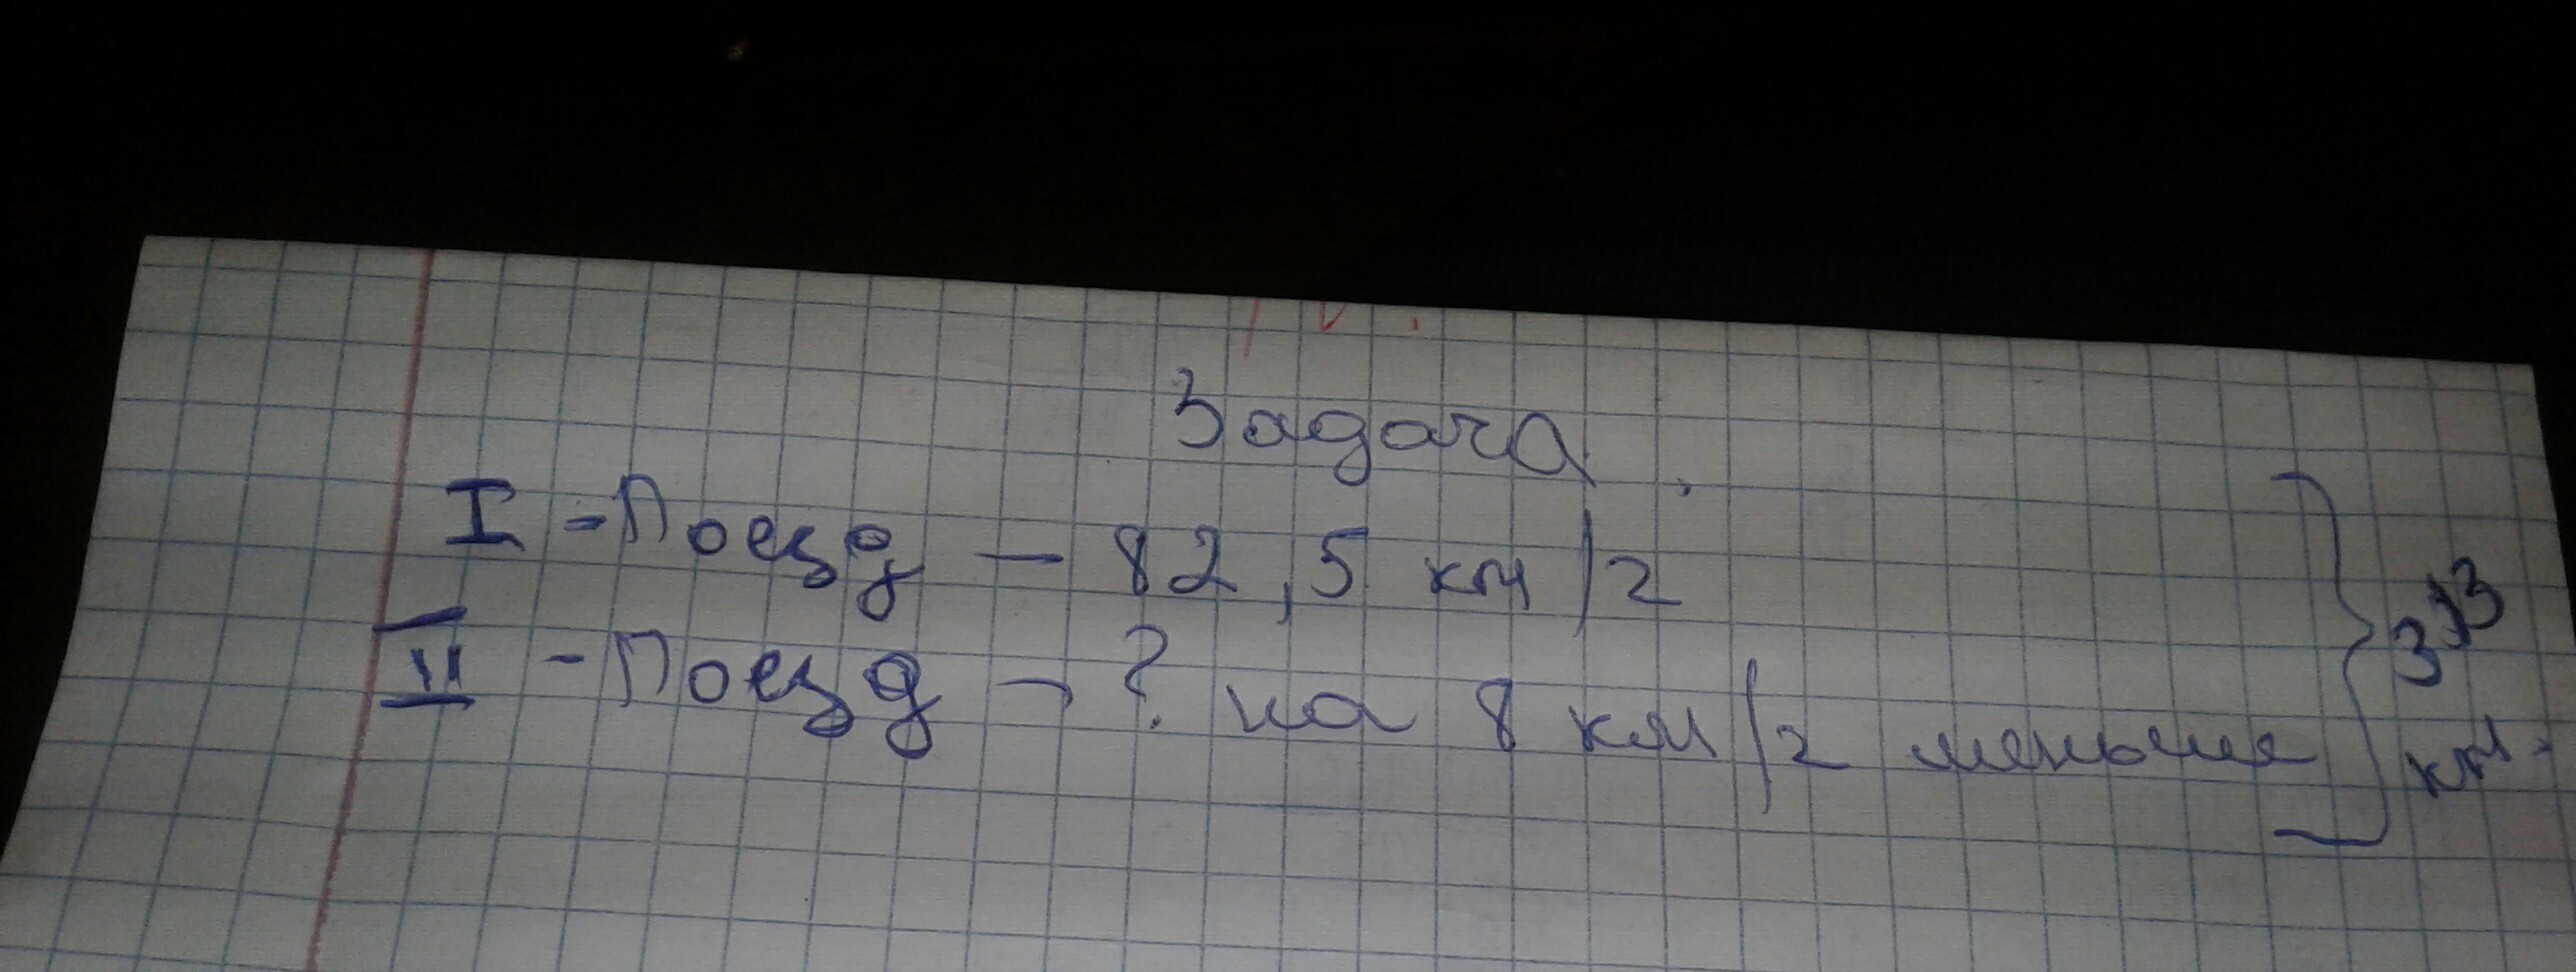 Задача.
I - Поезд - 82,5 км/г
II - Поезд - ? на 8 км/г меньше
313
км.